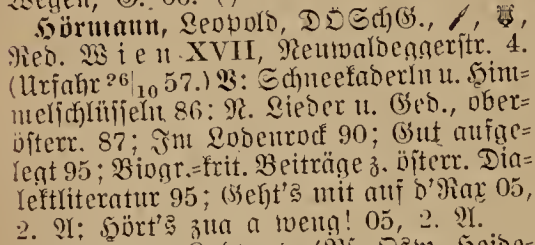 Hörmann, Leopold, DÖSchG.,
Red. Wien XVII, Neuwaldeggerstr. 4.
(Urfahr 26/10 57.) V: Schneekaderln u. Him=
melschlüsseln 86; N. Lieder u. Ged., ober=
österr. 87; Im Lodenrock 90; Gut aufge=
legt 95; Biogr.=krit. Beiträge z. österr. Dia=
lektliteratur 95; Geht's mit auf d'Rax 05,
2. A; Hört's zua a weng! 05, 2. A.